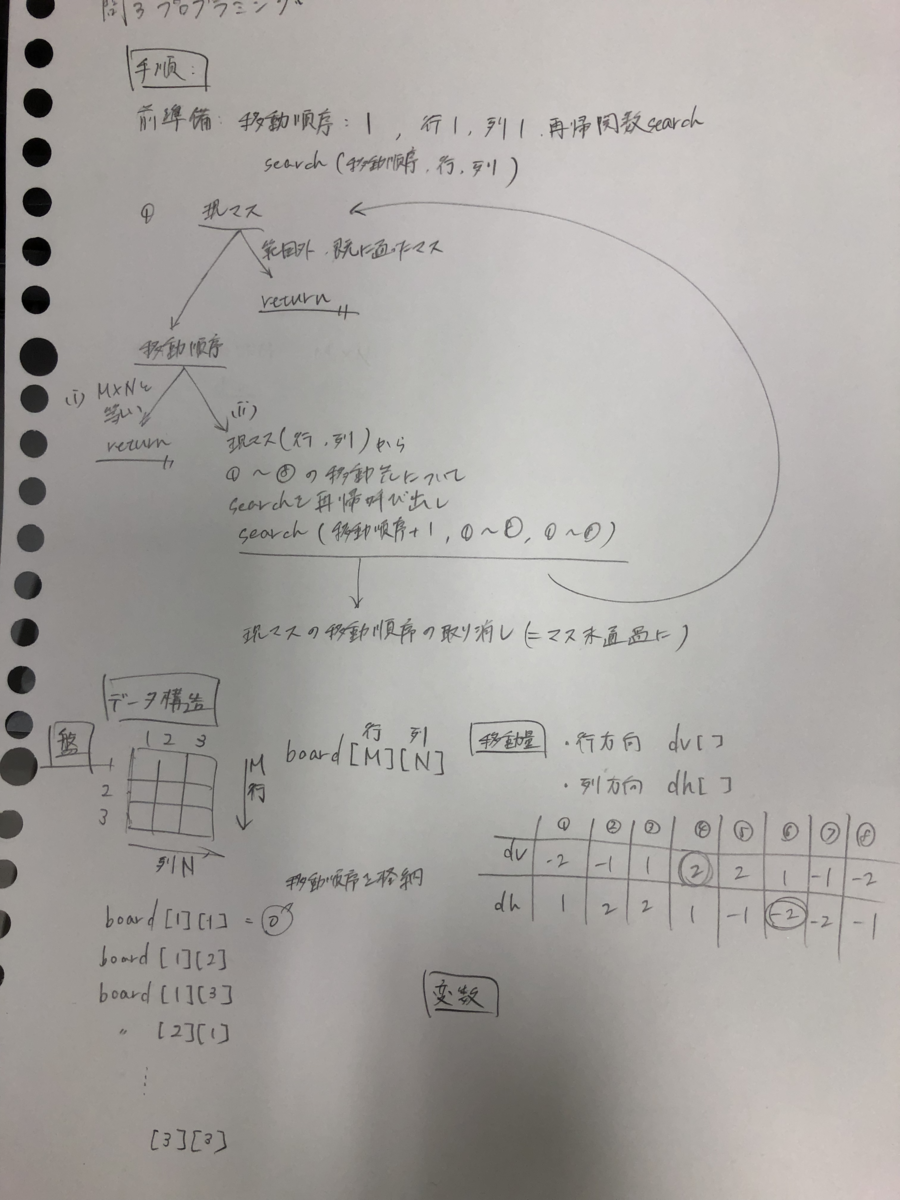 問3 プログラミング
手順:
前準備: 移動順序: 1, 行1, 列1. 再帰関数search
search (移動順序, 行, 列)
① 現マス
範囲外・既に通ったマス
return
移動順序
(i) M×Nと
等しい
return
(ii)
現マス(行, 列)から
①〜⑧の移動先について
searchを再帰呼び出し
search (移動順序+1, ①〜⑧, ①〜⑧)
現マスの移動順序の取り消し (=マス未通過に)
データ構造
盤
1 2 3
1
2
3
M
行
列N
行 列
board [M][N]
移動量 ・行方向 dv[ ]
・列方向 dh[ ]
① ② ③ ④ ⑤ ⑥ ⑦ ⑧
dv -2 -1 1 2 2 1 -1 -2
dh 1 2 2 1 -1 -2 -2 -1
移動順序を格納
board [1][1] = 0
board [1][2]
board [1][3]
〃 [2][1]
⋮
[3][3]
変数